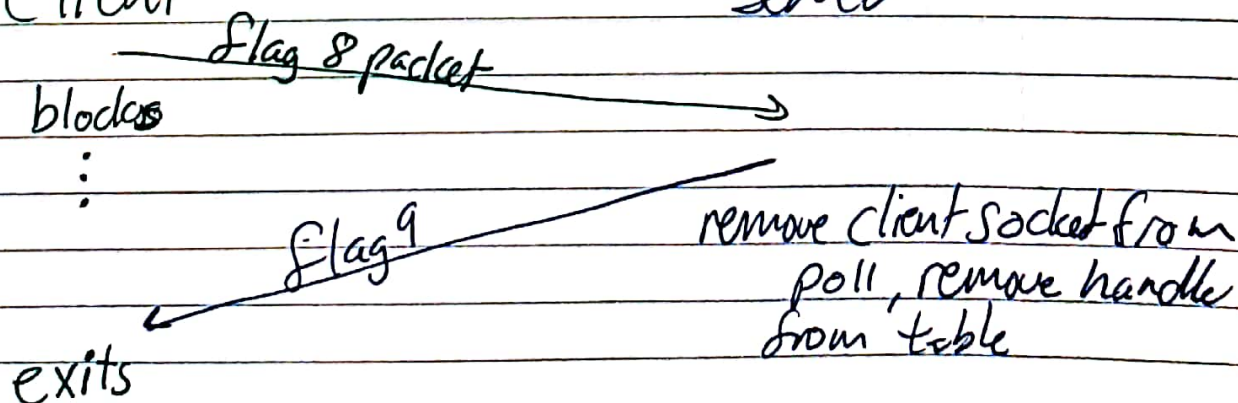 flag 8 packet
blocks
:
flag 9
remove client socket from
poll, remove handle
from table
exits